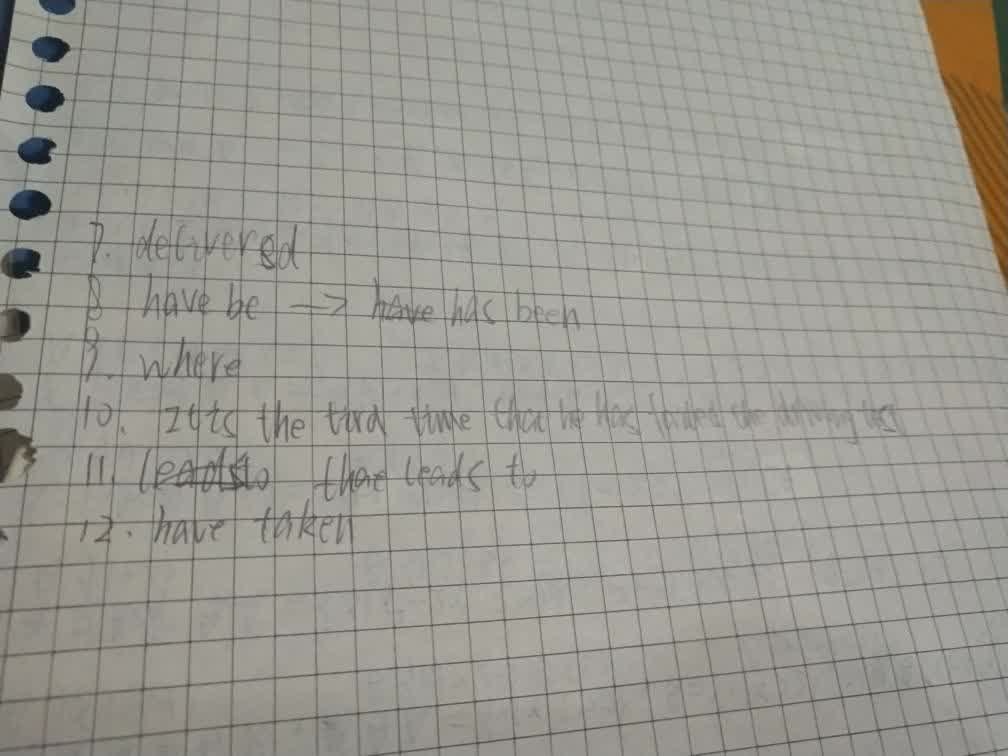 7. delivered
8 have be → have has been
9. where
10. It's the tird time that he has failed the driving test
11. leads to that leads to
12. have taken